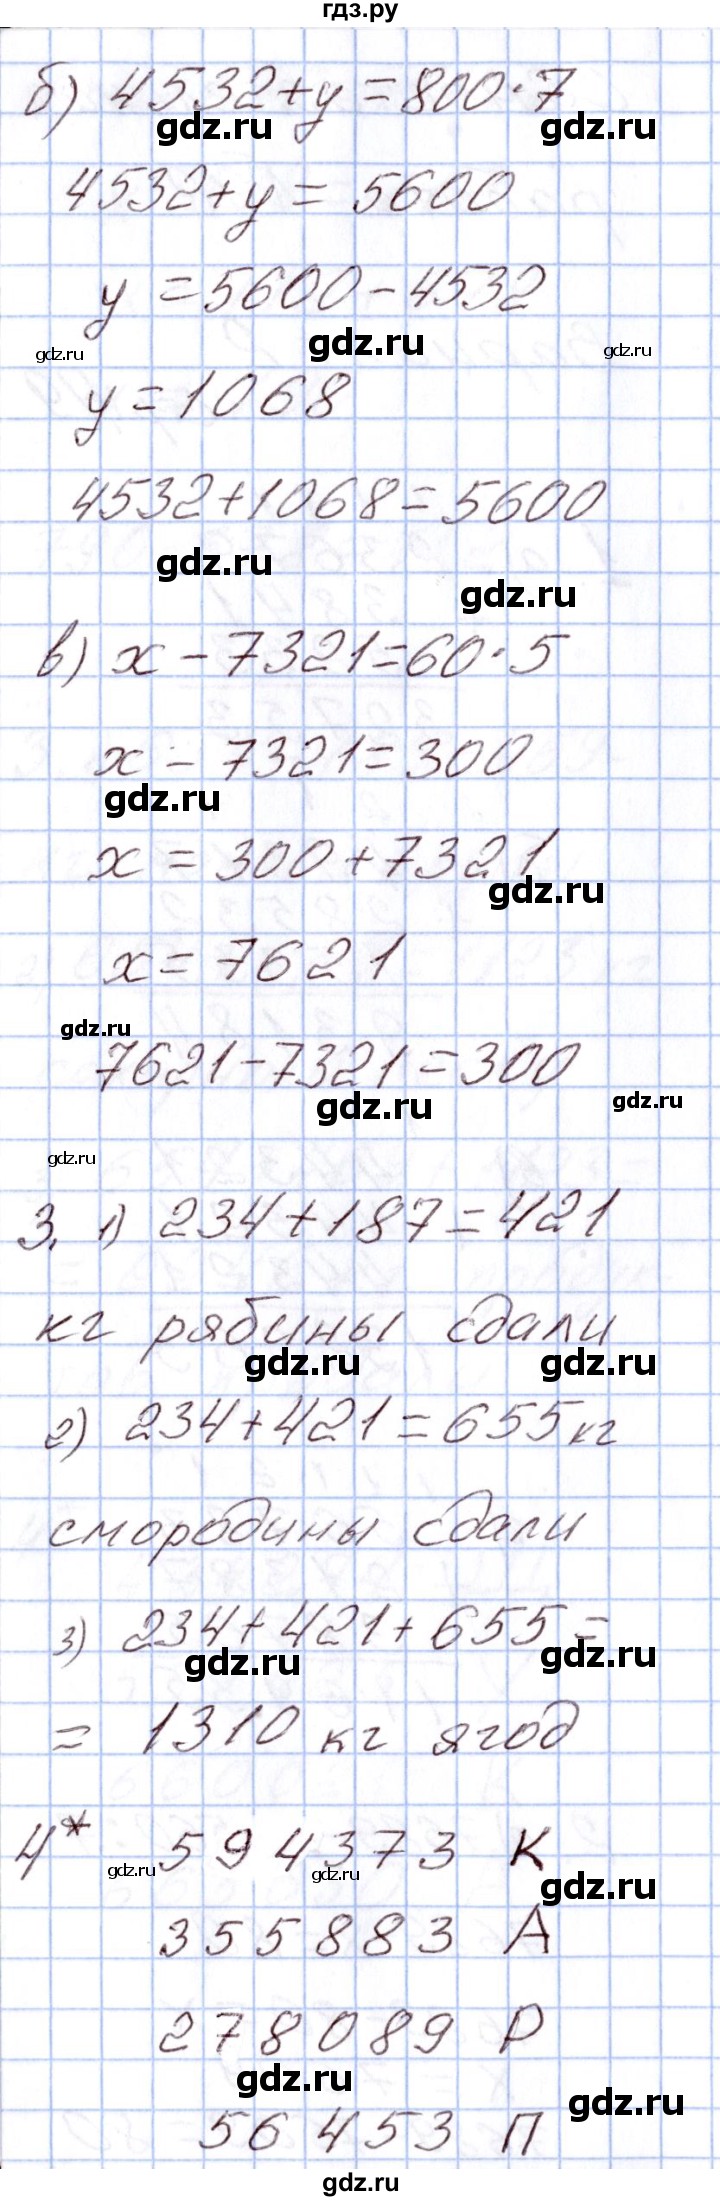 гдз.ру
б) 4532+y=800·7
gdz.ru gdz.ru
4532+y=5600
y=5600-4532
gdz.ru gdz.ru gdz.ru
y=1068
4532+1068=5600
gdz.ru gdz.ru
в) x-7321=60·5
x-7321=300
gdz.ru
x=300+7321
gdz.ru
x=7621
gdz.ru
7621-7321=300
gdz.ru gdz.ru
gdz.ru
3. 1) 234+187=421
кг рябины сдали
gdz.ru gdz.ru
2) 234+421=655 кг
смородины сдали
3) 234+421+655=
gdz.ru gdz.ru
= 1310 кг ягод
4* 594373 К
gdz.ru gdz.ru gdz.ru
355883 А
278089 Р
gdz.ru gdz.ru
56453 П
gdz.ru